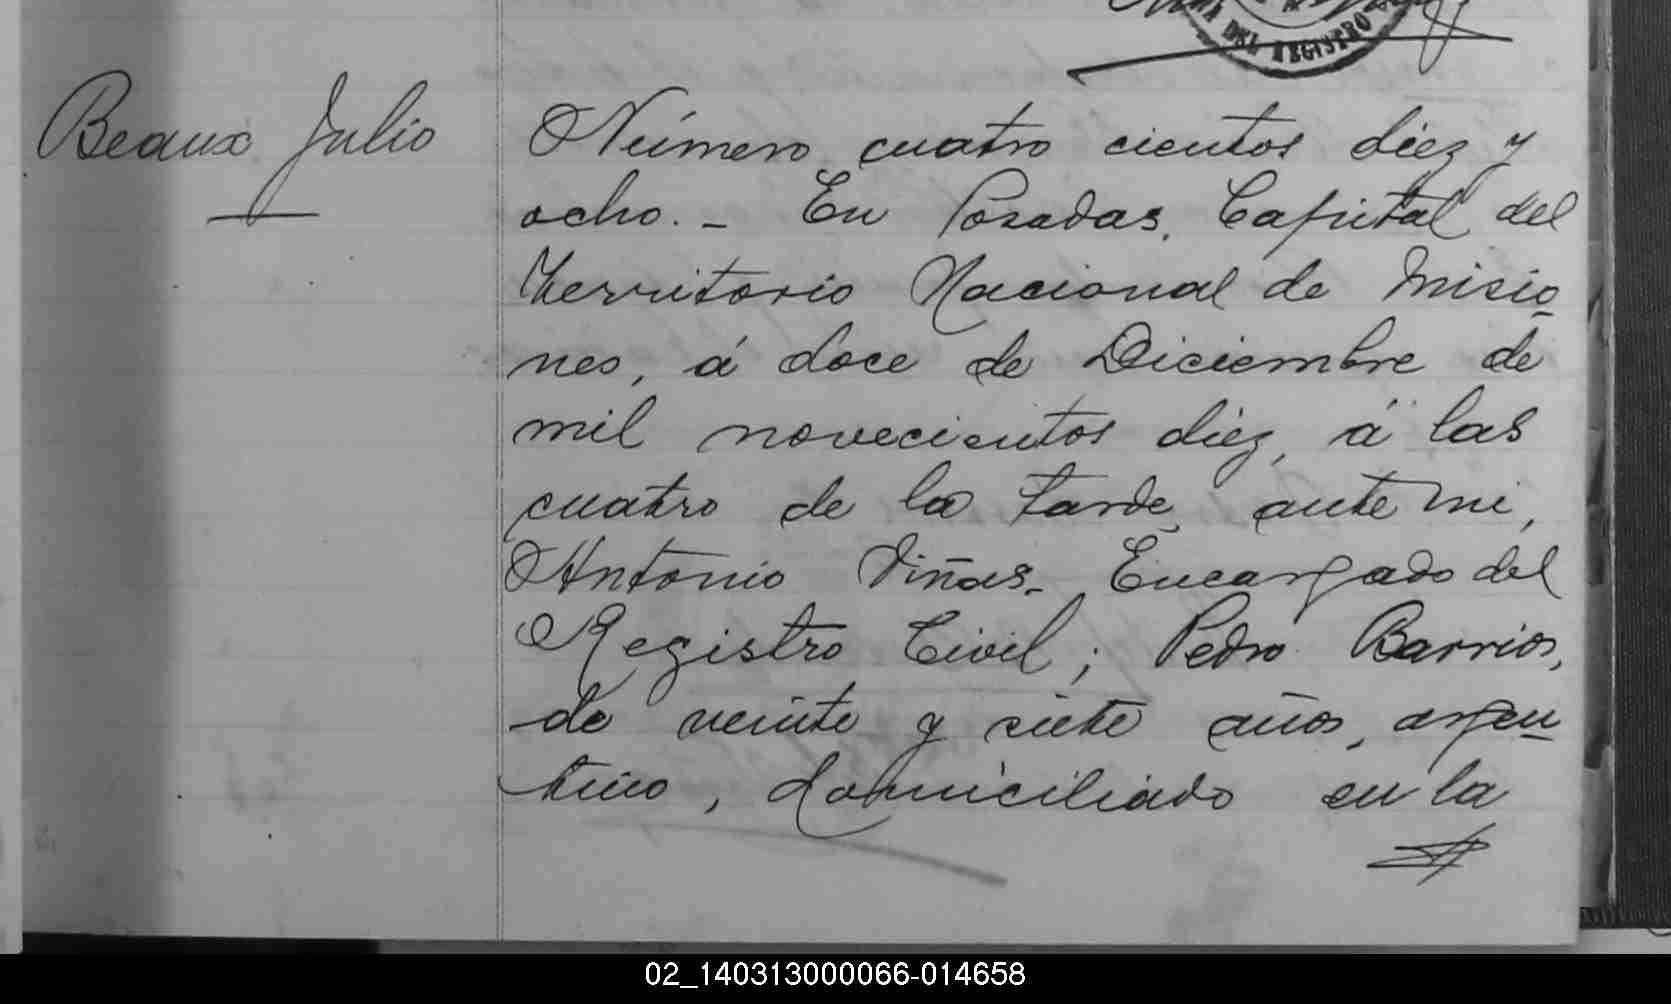 DEL REGISTRO
Beaux Julio
Número cuatro cientos diez y
ocho. - En Posadas, Capital del
Territorio Nacional de Misio-
nes, á doce de Diciembre de
mil novecientos diez, á las
cuatro de la tarde, ante mi,
Antonio Viñas, Encargado del
Registro Civil; Pedro Barrios,
de veinte y siete años, argen-
tino, domiciliado en la
02_140313000066-014658